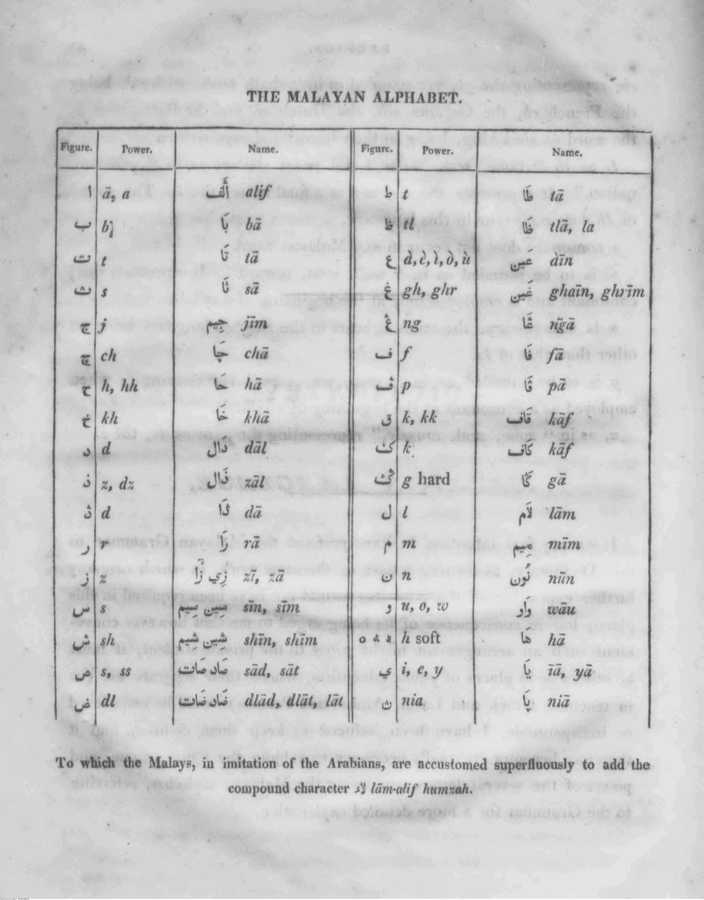 THE MALAYAN ALPHABET.
Figure. Power. Name. Figure. Power. Name.
ا ā, a أَلِف alif ط t طَا tā
ب b بَا bā ظ tl ظَا tlā, la
ت t تَا tā ع à, è, ì, ò, ù عَين âīn
ث s ثَا sā غ gh, ghr غَين ghaīn, ghrīm
ج j جِيم jīm ڠ ng ڠَا ngā
چ ch چَا chā ف f فَا fā
ح h, hh حَا hā ڤ p ڤَا pā
خ kh خَا khā ق k, kk قَاف kāf
د d دَال dāl ك k كَاف kāf
ذ z, dz ذَال zāl g hard gā
d dā ل l لاَم lām
ر r رَا rā م m مِيم mīm
ز z زَا زِي zī, zā ن n نُون nūn
س s سِين سِيم sīn, sīm و u, o, w وَاو wāu
ش sh شِين شِيم shīn, shīm h soft هَا hā
ص s, ss صَاد صَات sād, sāt ي i, e, y يَا īā, yā
ض dl ضَاد ضَات dlād, dlāt, lāt nia niā
To which the Malays, in imitation of the Arabians, are accustomed superfluously to add the
compound character لاء lām-alif humzah.